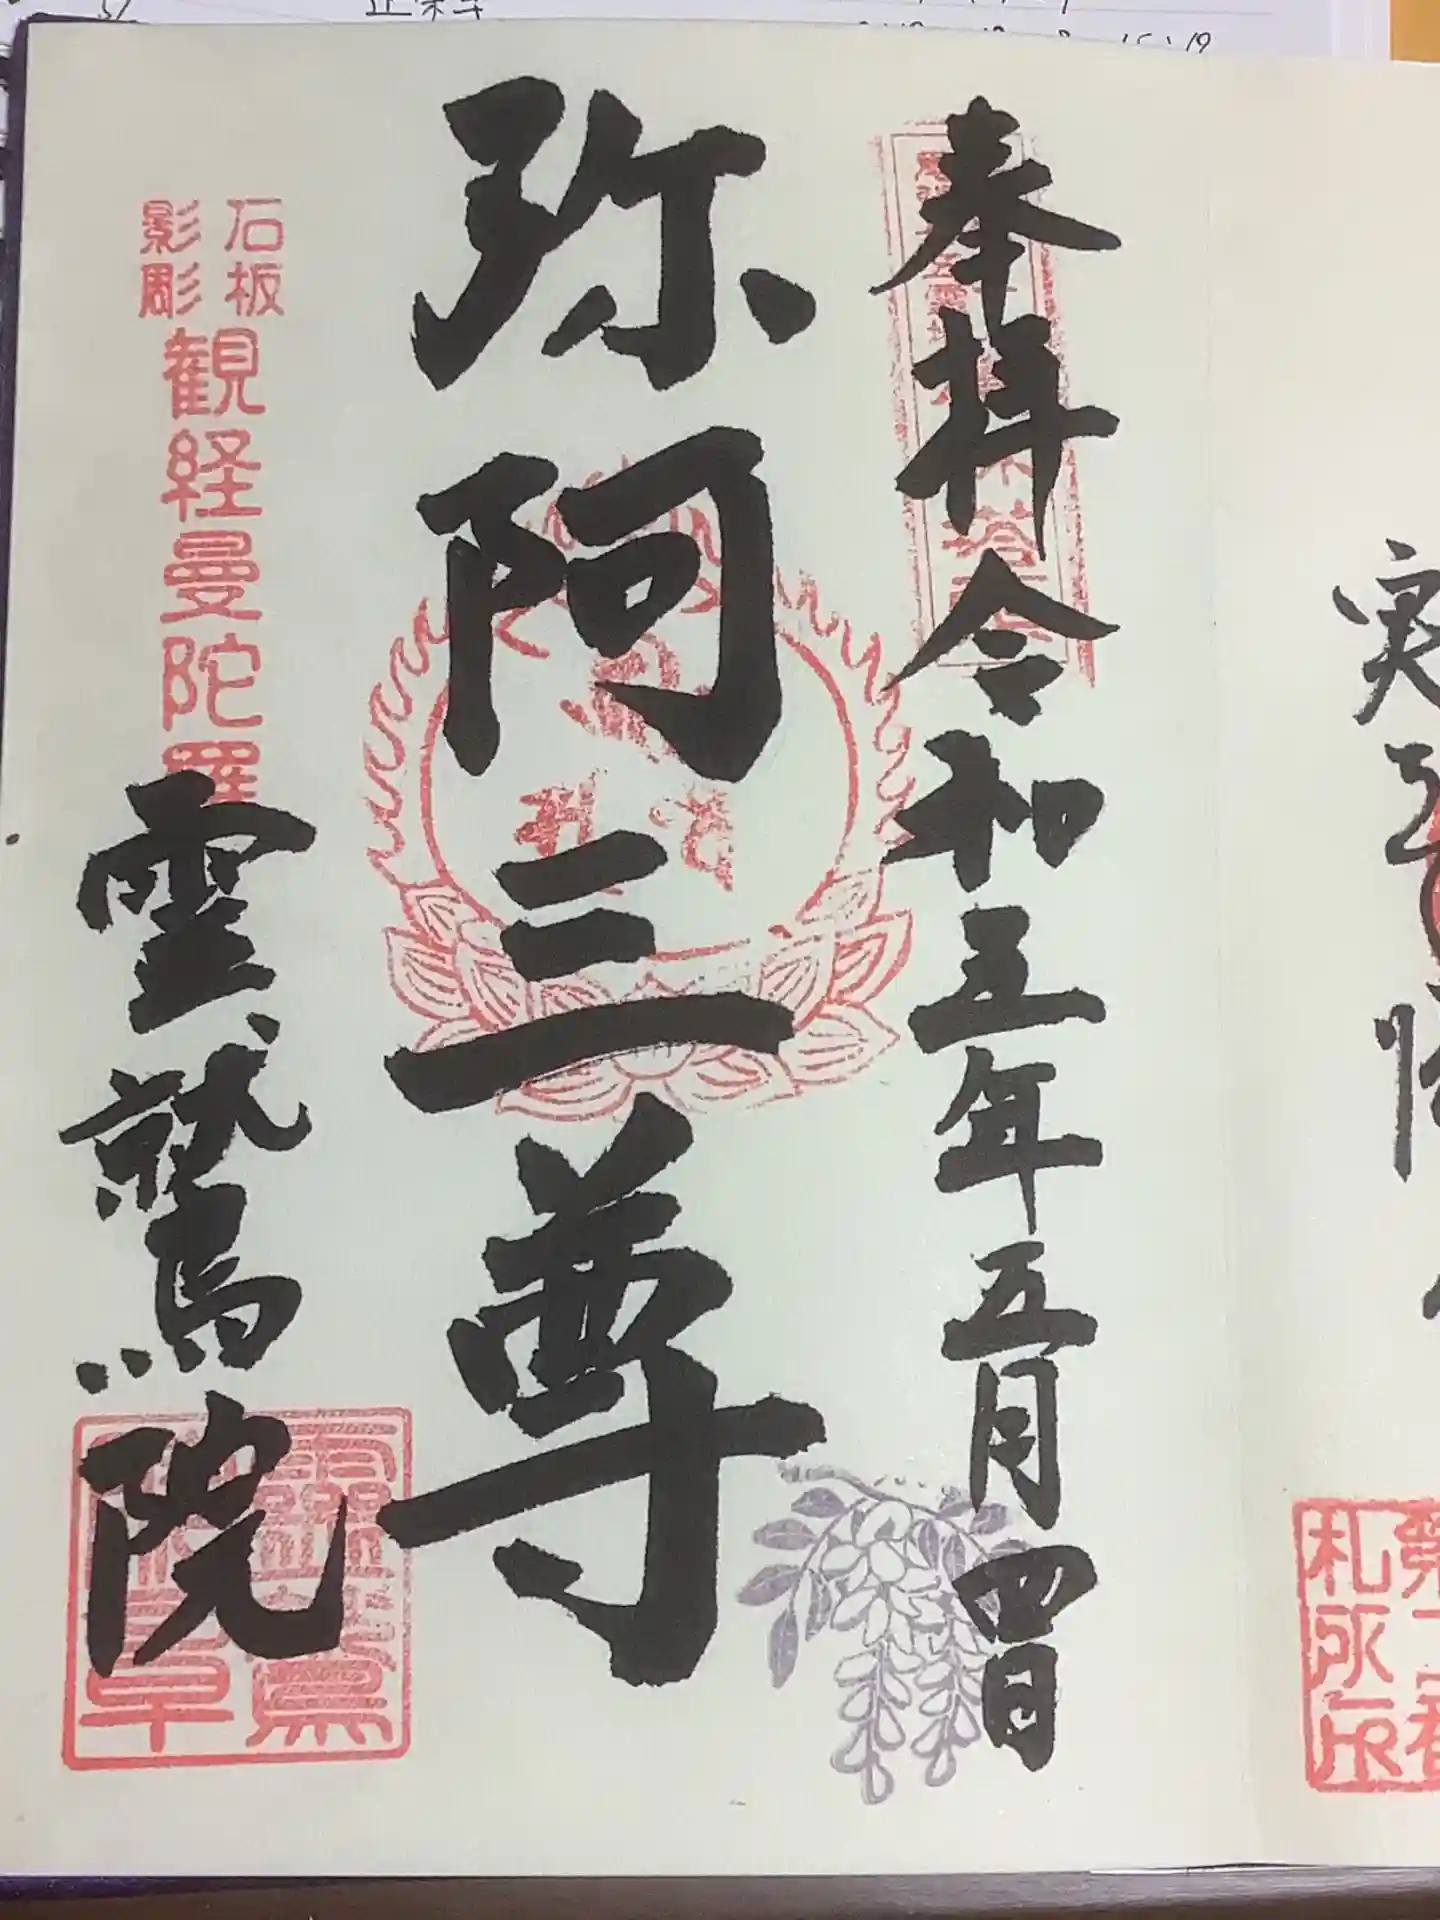 奉拝 令和五年五月四日
弥阿三尊
石板
影彫
観経曼陀羅
霊鷲院
札所